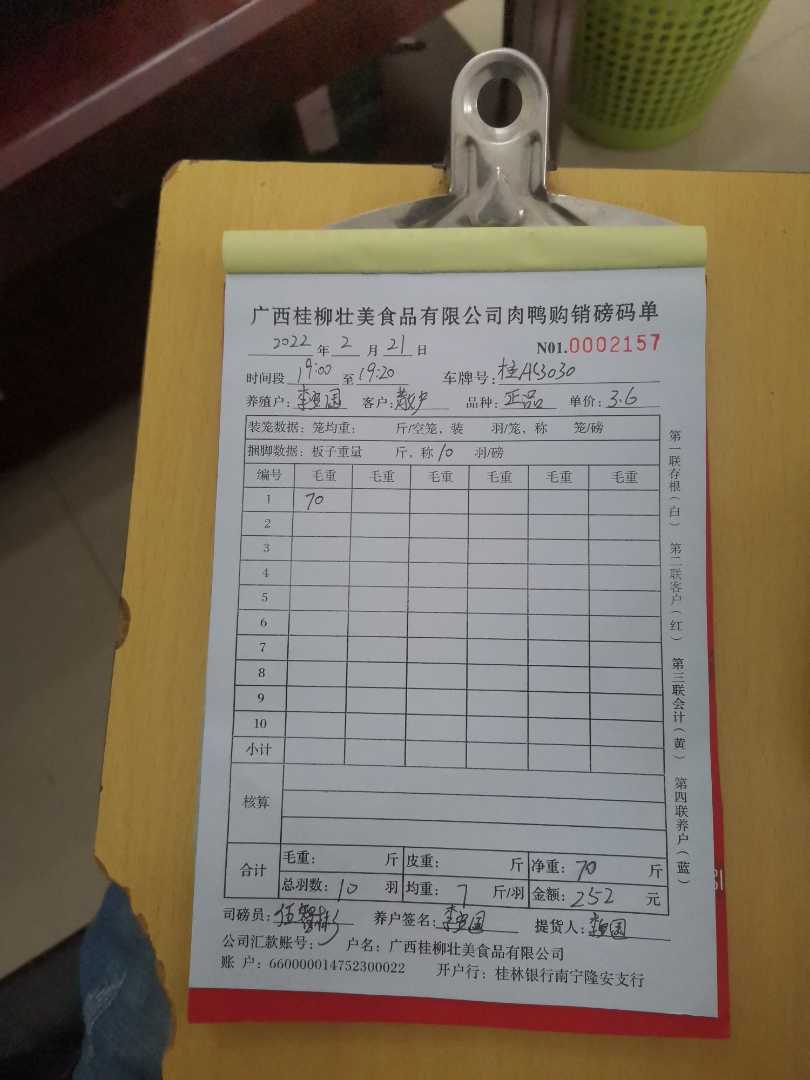 广西桂柳壮美食品有限公司肉鸭购销磅码单
2022 年 2 月 21 日 N01.0002157
时间段 19:00 至 19:20 车牌号: 桂AS3030
养殖户: 客户: 散户 品种: 正品 单价: 3.6
装笼数据: 笼均重: 斤/空笼、装 羽/笼、称 笼/磅
捆脚数据: 板子重量 斤、称 10 羽/磅
编号 毛重 毛重 毛重 毛重 毛重 毛重
1 70
2
3
4
5
6
7
8
9
10
小计
核算
合计 毛重: 斤 皮重: 斤 净重: 70 斤
总羽数: 10 羽 均重: 7 斤/羽 金额: 252 元
司磅员: 养户签名: 提货人:
公司汇款账号: 户名: 广西桂柳壮美食品有限公司
账 户: 660000014752300022 开户行: 桂林银行南宁隆安支行
第一联存根(白) 第二联客户(红) 第三联会计(黄) 第四联养户(蓝)